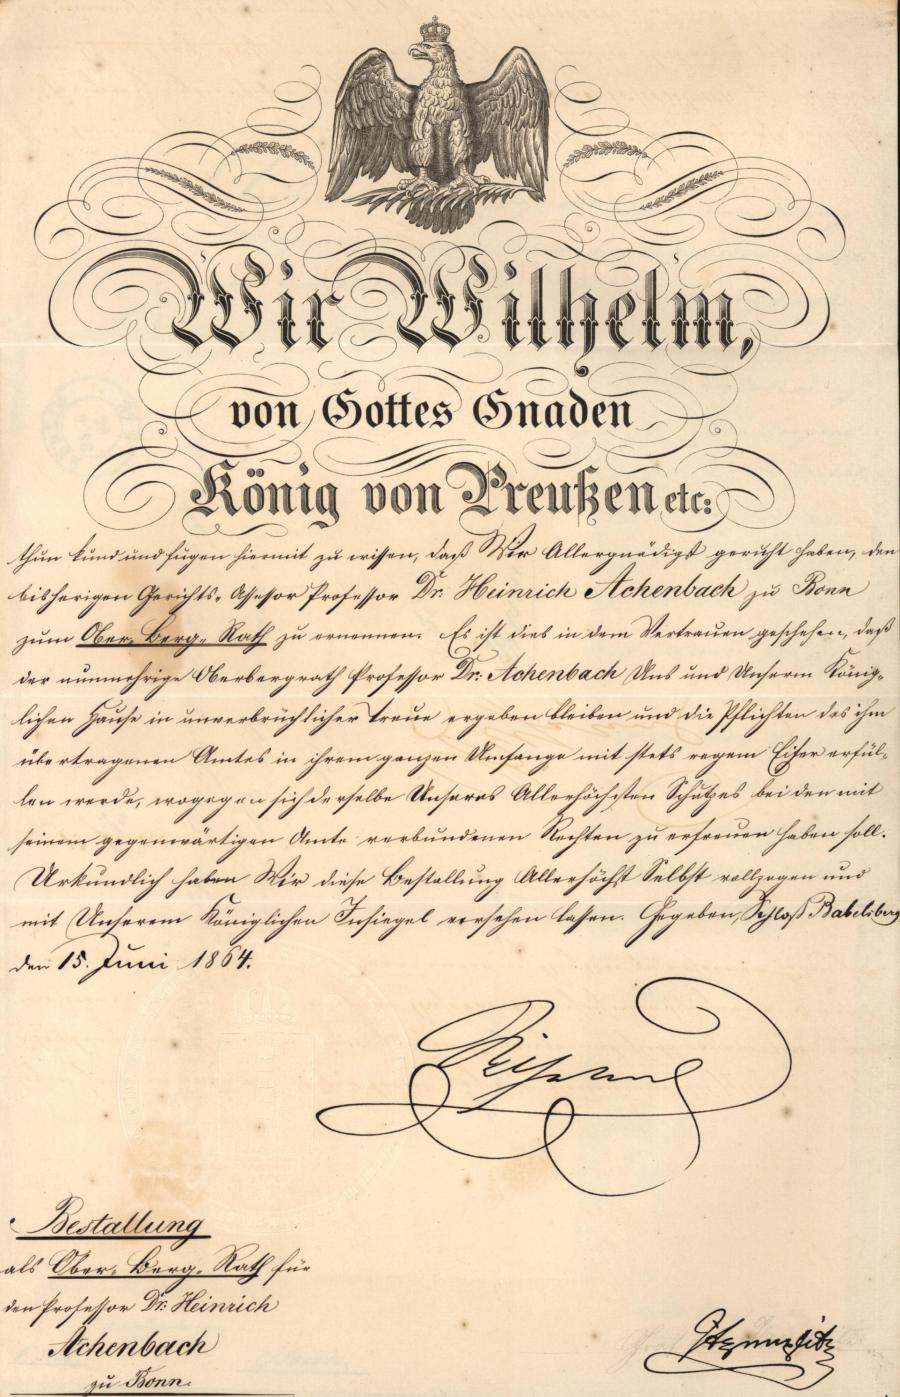 Wir Wilhelm,
von Gottes Gnaden
König von Preußen etc:
thun kund und fügen hiermit zu wissen, daß Wir Allergnädigst geruht haben, den
bisherigen Gerichts-Assessor Professor Dr. Heinrich Achenbach zu Bonn
zum Ober-Berg-Rath zu ernennen. Es ist dies in dem Vertrauen geschehen, daß
der nunmehrige Oberbergrath Professor Dr: Achenbach Uns und Unserm König-
lichen Hause in unverbrüchlicher Treue ergeben bleiben und die Pflichten des ihm
übertragenen Amtes in ihrem ganzen Umfange mit stets regem Eifer erfül-
len werde, wogegen sich derselbe Unseres Allerhöchsten Schutzes bei den mit
seinem gegenwärtigen Amte verbundenen Rechten zu erfreuen haben soll.
Urkundlich haben Wir diese Bestallung Allerhöchst Selbst vollzogen und
mit Unserem Königlichen Insiegel versehen lassen. Gegeben, Schloß Babelsberg
den 15. Juni 1864.
Wilhelm
Bestallung
als Ober-Berg-Rath für
den Professor Dr: Heinrich
Achenbach
zu Bonn.
Itzenplitz